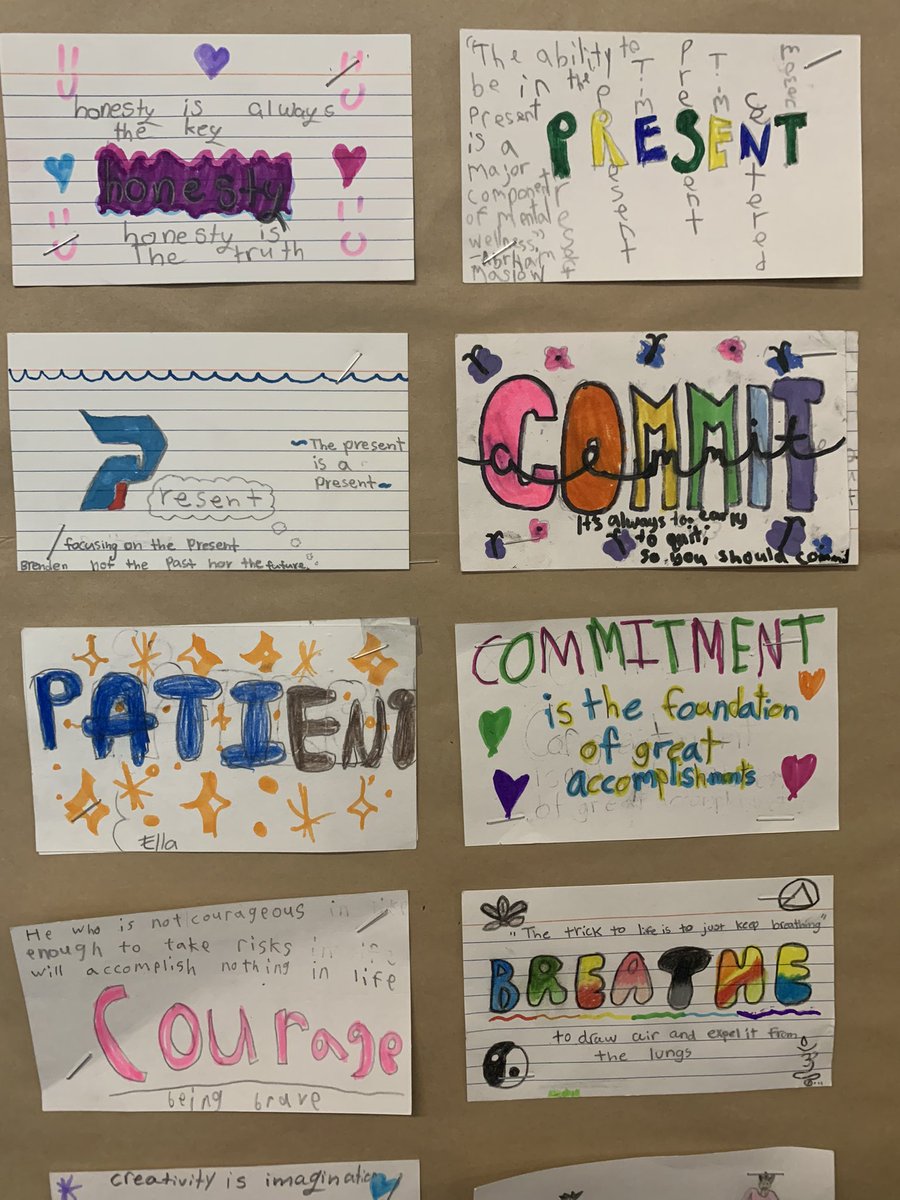 honesty is always
the key
honesty
honesty is
The truth
"The ability to
be in the
Present
is a
major
component
of mental
wellness.
-Abrham
Maslow
PRESENT
The present
is a
Present
resent
focusing on the Present
Brenden not the Past nor the future.
COMMIT
commit
It's always to early
to quit,
so you should commit
PATIENT
Ella
COMMITMENT
is the foundation
of great
accomplishments
He who is not courageous
enough to take risks
will accomplish nothing in life
Courage
being brave
"The trick to life is to just keep breathing"
BREATHE
to draw air and expel it from
the lungs
creativity is imagination